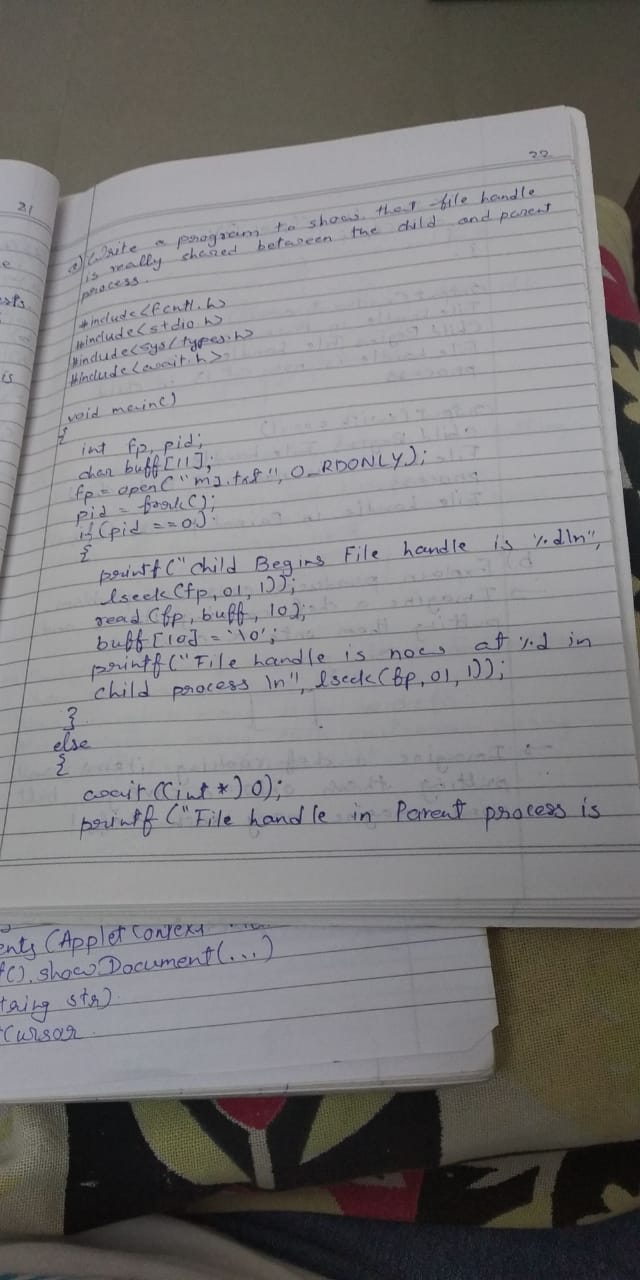 22
a) Write a program to show that file handle
is really shared between the child and parent
process.
#include<fcntl.h>
#include<stdio.h>
#include<sys/types.h>
#include<wait.h>
void main()
{
int fp, pid;
char buff[11];
fp = open("m1.txt", O_RDONLY);
pid = fork();
if(pid == 0)
{
printf("Child Begins File handle is %d\n",
lseek(fp,01,1));
read(fp, buff, 10);
buff[10] = '\0';
printf("File handle is now at %d in
child process \n", lseek(fp,01,1));
}
else
{
wait((int *) 0);
printf("File handle in Parent process is
21
ents (Applet Context
f(). showDocument(...)
tring str)
Cursor